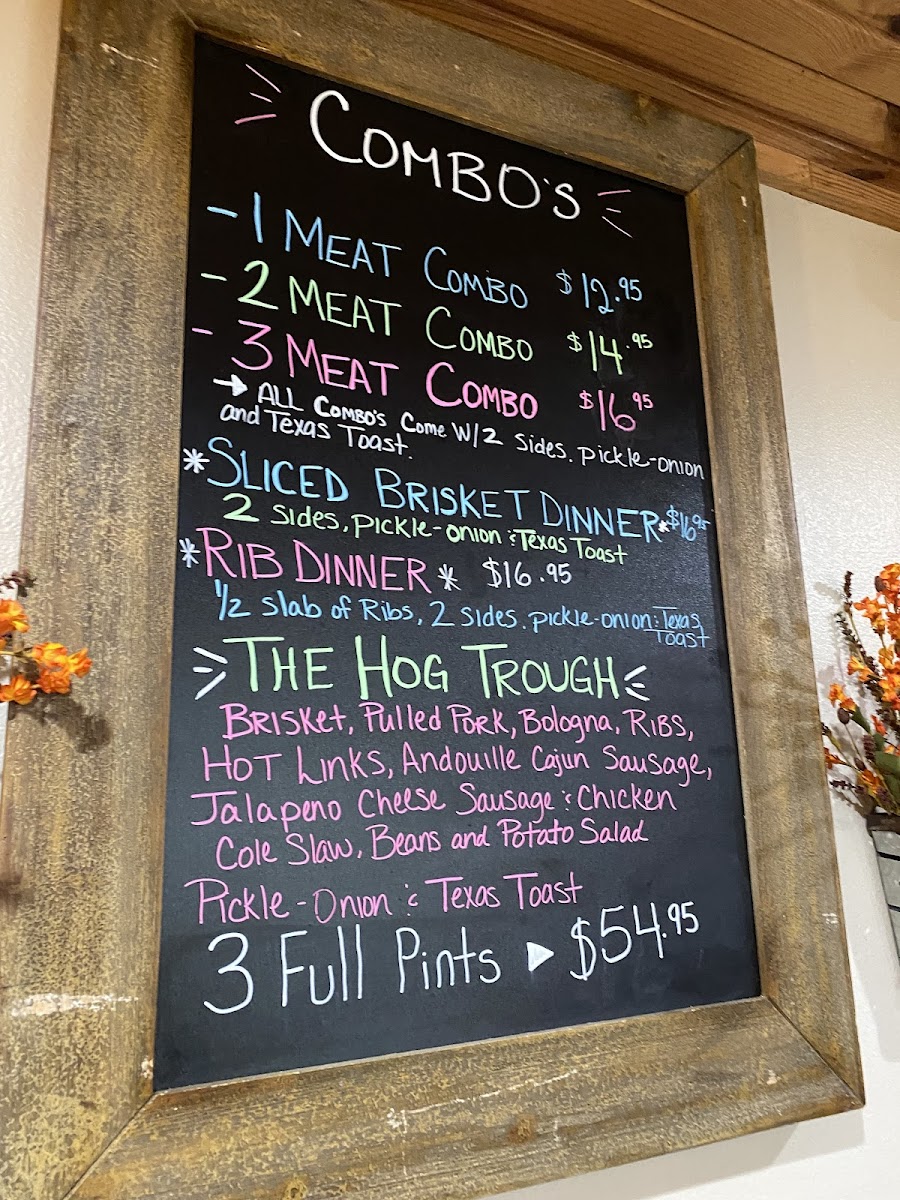 COMBO'S
- 1 MEAT COMBO $12.95
- 2 MEAT COMBO $14.95
- 3 MEAT COMBO $16.95
→ ALL COMBO'S Come W/2 Sides. pickle-onion
and Texas Toast.
*SLICED BRISKET DINNER* $16.95
2 Sides, pickle-onion & Texas Toast
*RIB DINNER* $16.95
1/2 Slab of Ribs, 2 sides. pickle-onion & Texas
Toast
THE HOG TROUGH
BRISKET, Pulled PORK, Bologna, RIBS,
HOT LINKS, Andouille Cajun Sausage,
Jalapeno Cheese Sausage & Chicken
Cole Slaw, Beans and Potato Salad
Pickle-Onion & Texas Toast
3 Full Pints ▶ $54.95